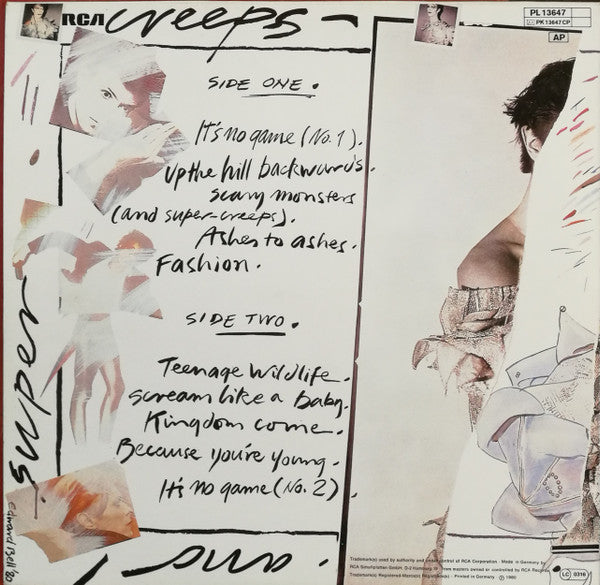 RCA
creeps
PL 13647
PK 13647 CP
AP
SIDE ONE.
It's no game (No. 1).
Up the hill backwards.
scary monsters
(and super-creeps).
Ashes to ashes.
Fashion.
SIDE TWO.
Teenage Wildlife.
scream like a Baby.
Kingdom come.
Because you're young.
It's no game (No. 2).
super
and
Edward Bell '80
Trademark(s) used by authority and under control of RCA Corporation · Made in Germany
RCA Schallplatten GmbH, D-2 Hamburg
owned or controlled by RCA Records
Trademark(s) Registered · Marca(s) Registrada(s) · Printed in Germany
LC 0316